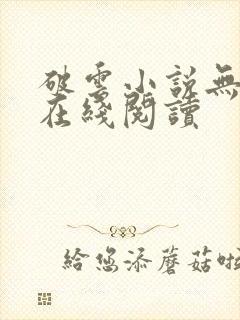 破雲小説無
在綫閱讀
給您添蘑菇啦